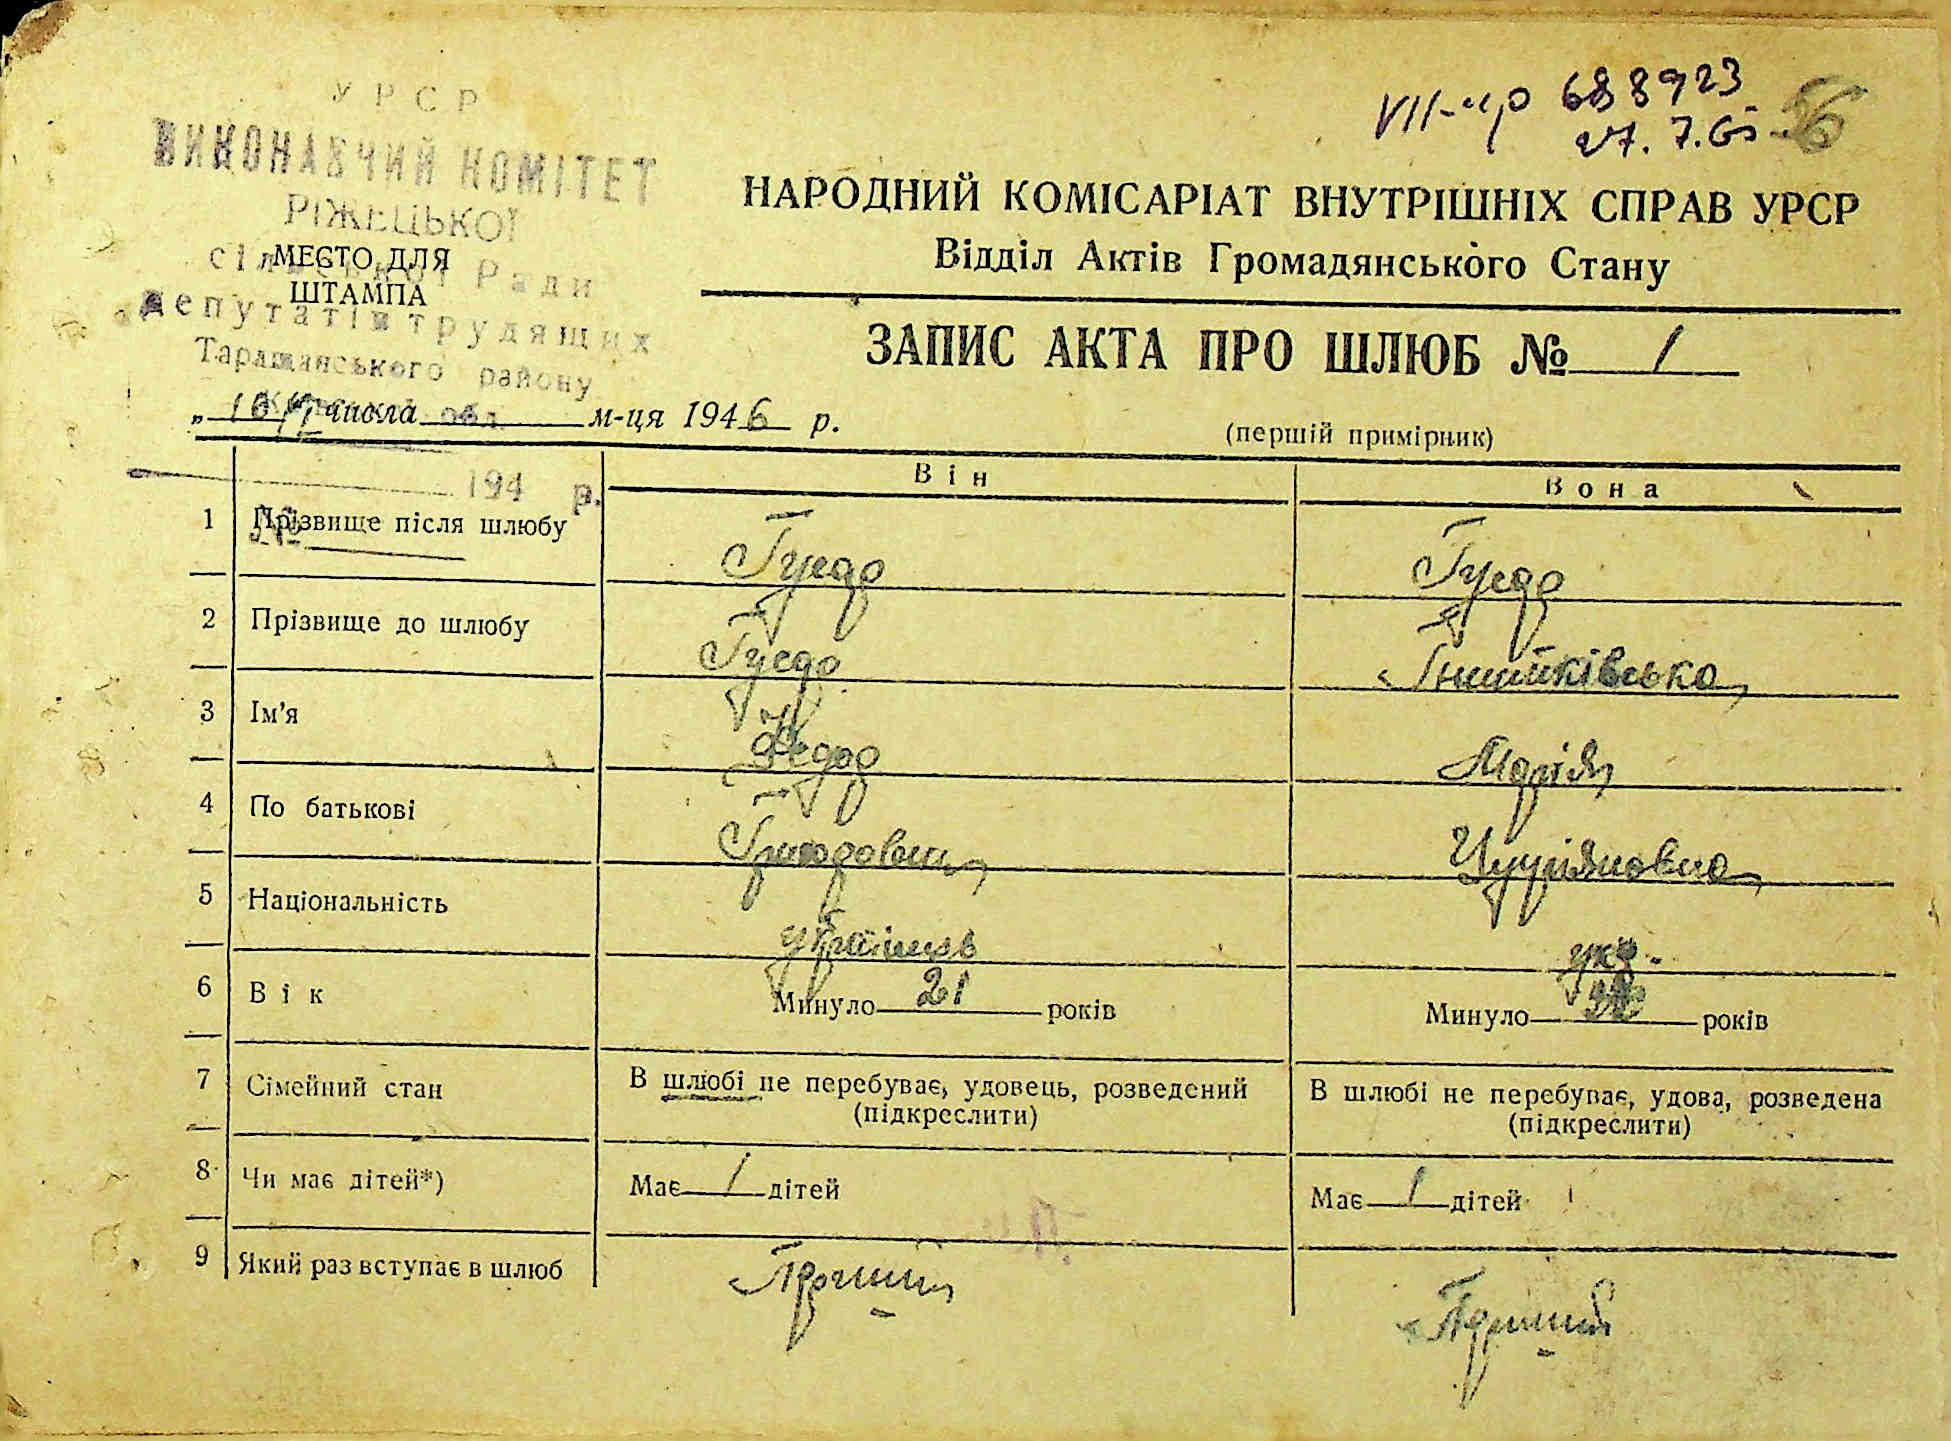 VII-чр 688923
27. 7.65
56
УРСР
ВИКОНАВЧИЙ КОМІТЕТ
РІЖЕЦЬКОЇ
сільської Ради
депутатів трудящих
Таращанського району
Київської обл.
194 р.
№
МЕСТО ДЛЯ
ШТАМПА
НАРОДНИЙ КОМІСАРІАТ ВНУТРІШНІХ СПРАВ УРСР
Відділ Актів Громадянського Стану
ЗАПИС АКТА ПРО ШЛЮБ № 1
„ числа м-ця 1946 р.
(першій примірник)
Він Вона
1 Прізвище після шлюбу
2 Прізвище до шлюбу
3 Ім'я Федор Марія
4 По батькові
5 Національність українець укр.
6 Вік Минуло 21 років Минуло років
7 Сімейний стан В шлюбі не перебуває, удовець, розведений В шлюбі не перебуває, удова, розведена
(підкреслити) (підкреслити)
8 Чи має дітей*) Має 1 дітей Має 1 дітей
9 Який раз вступає в шлюб Перший